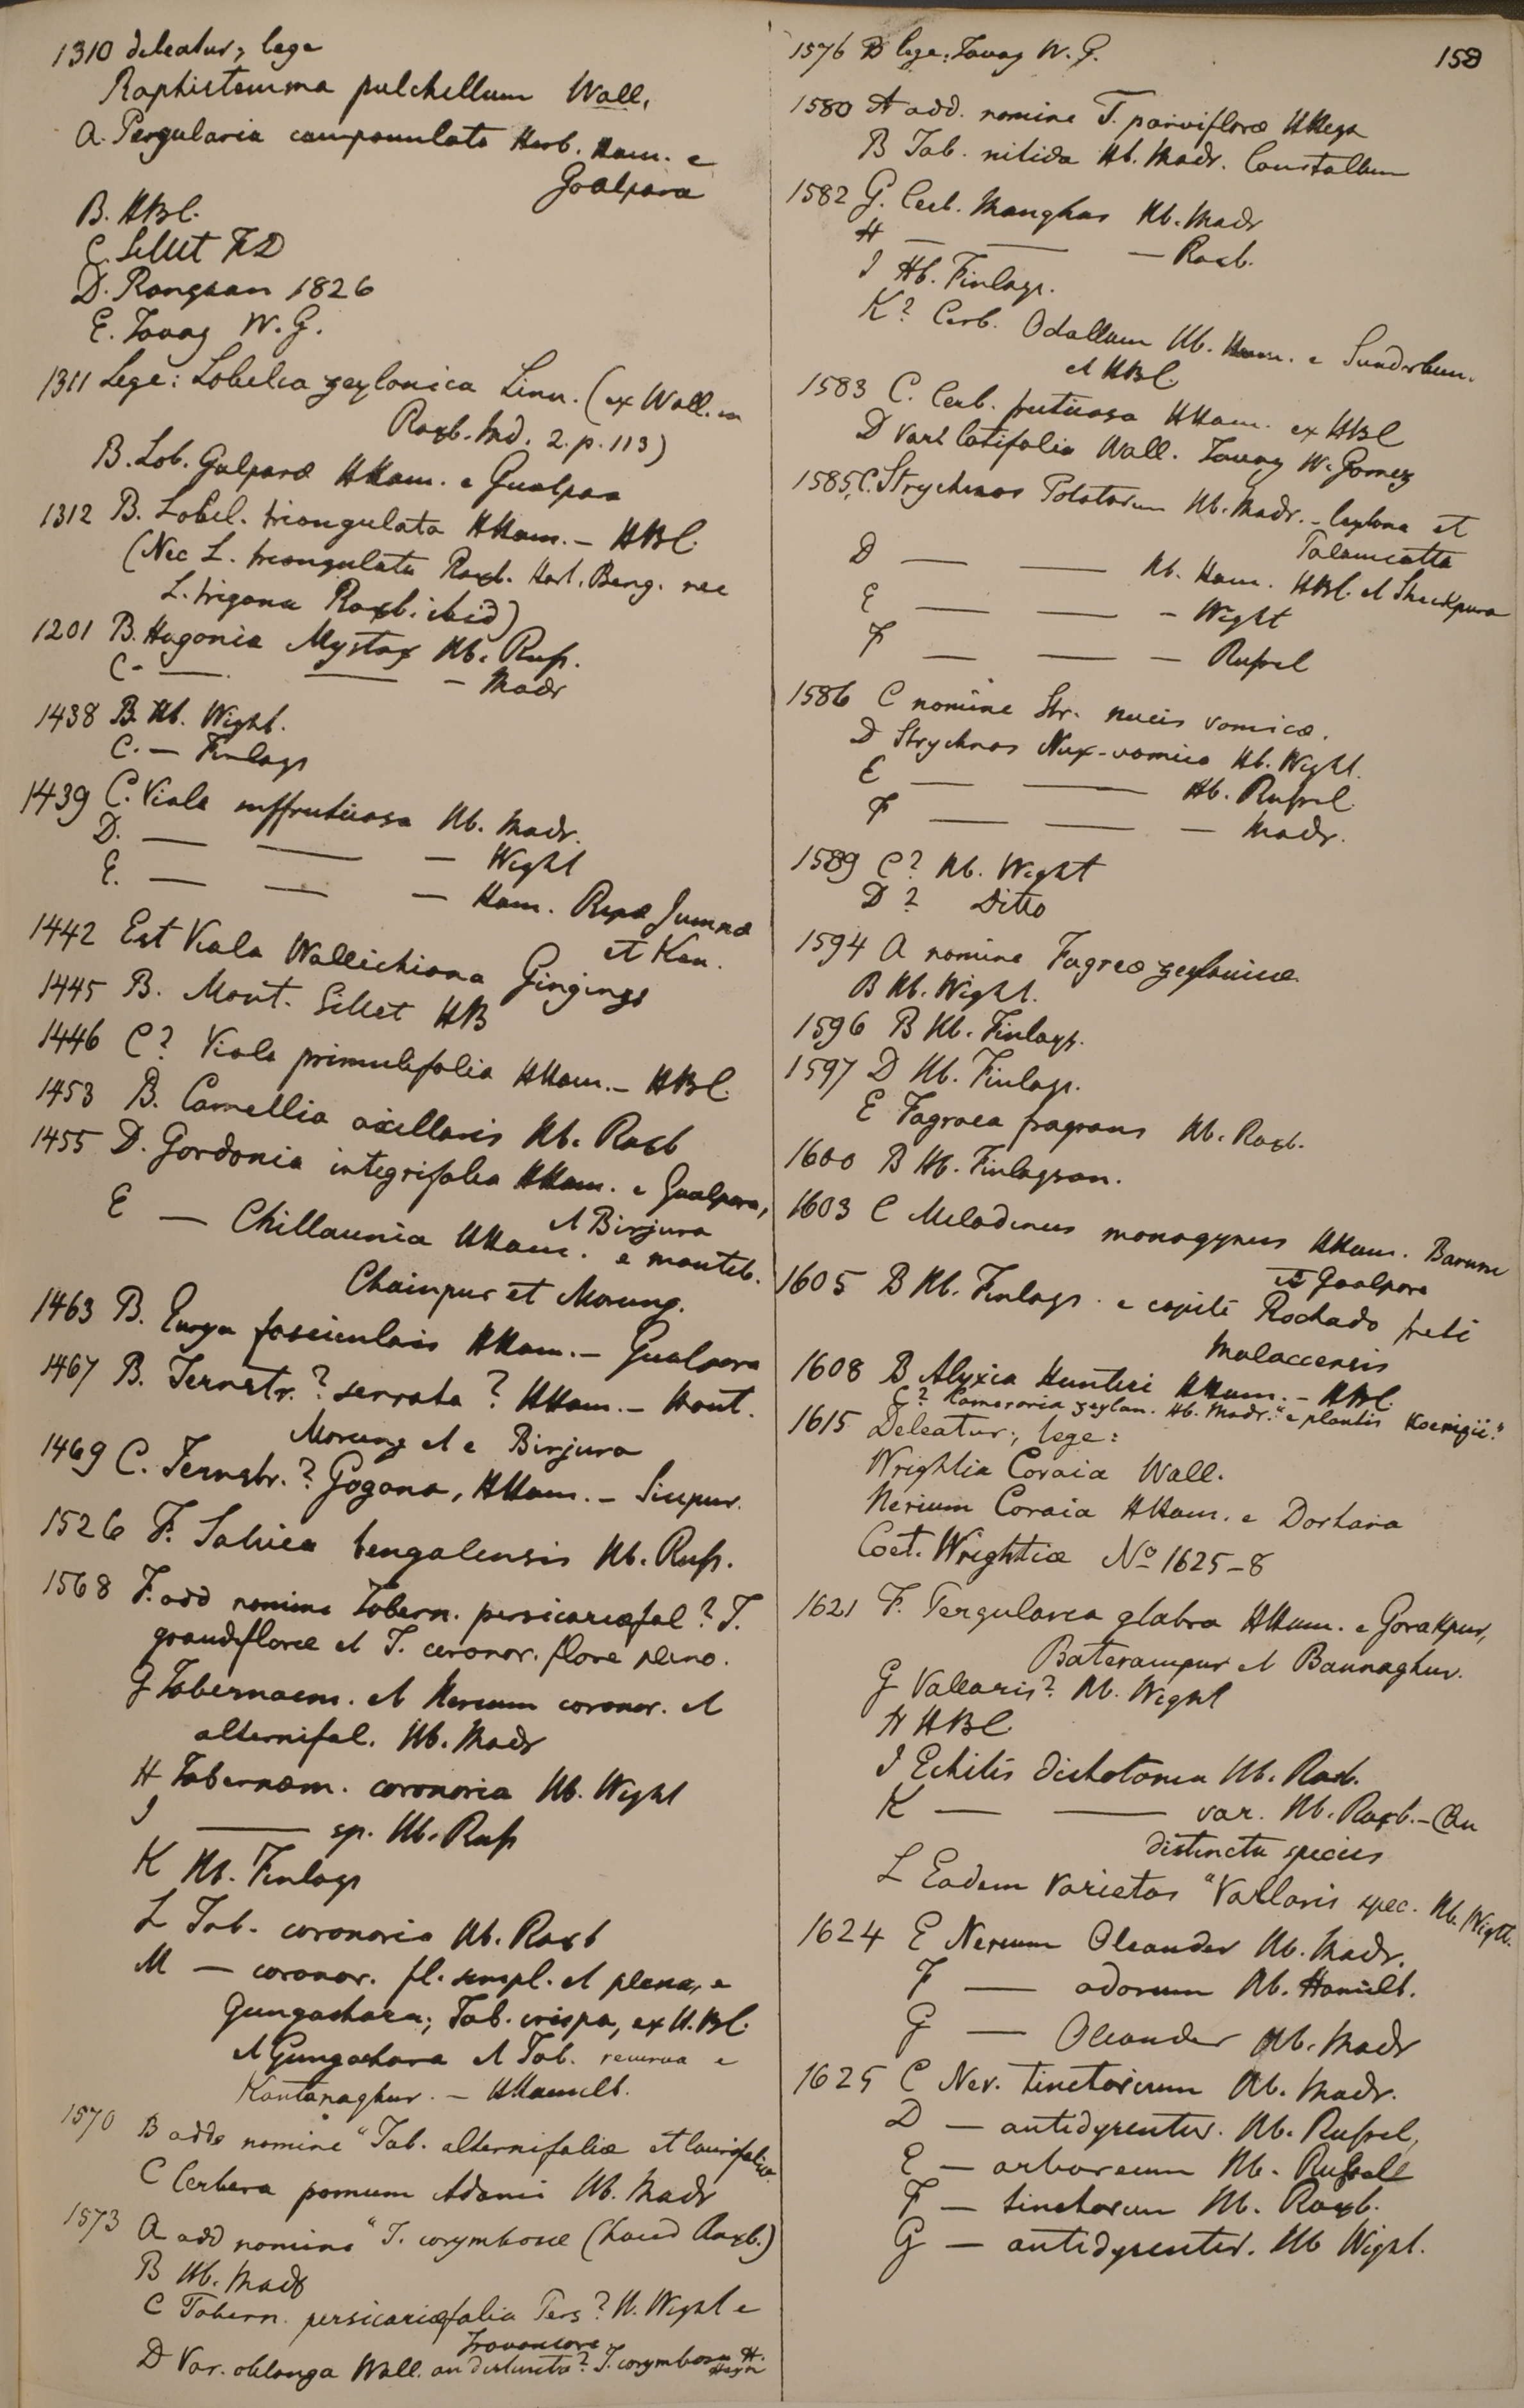 1310 deleatur, lege
Raphistemma pulchellum Wall.
A. Pergularia campanulata Herb. Ham. e
Goalpara
B. HBC.
C. Sillet FD
D. Rangoon 1826
E. Tavoy W. G.
1311 Lege: Lobelia zeylanica Linn. (ex Wall. in
Roxb. Ind. 2. p. 113)
B. Lob. Goalparæ HHam. e Gualpara
1312 B. Lobel. triangulata HHam. – HBC.
(Nec L. triangulata Roxb. Hort. Beng. nec
L. trigona Roxb. ibid)
1201 B. Hugonia Mystax Hb. Russ.
C. — — – Madr
1438 B. Hb. Wight.
C. — Finlays
1439 C. Viola suffruticosa Hb. Madr.
D. — — – Wight
E. — — – Ham. Ripæ Jumnæ
et Ken.
1442 Est Viola Wallichiana Gingins
1445 B. Mont. Sillet HB
1446 C? Viola primulifolia HHam. – HBC.
1453 B. Camellia axillaris Hb. Roxb
1455 D. Gordonia integrifolia HHam. e Gualpara,
et Birjura
E — Chillaunia HHam. e montib.
Chainpur et Morung.
1463 B. Eurya fascicularis HHam. – Gualpara
1467 B. Ternstr.? serrata? HHam. – Mont.
Morung et e Birjura
1469 C. Ternstr.? Gogona, HHam. – Sirpur.
1526 F. Salvia bengalensis Hb. Russ.
1568 F. add nomine Tabern. persicariæfol? T.
grandifloræ et T. coronar. flore pleno.
G Tabernaem. et Nerium coronar. et
alternifol. Hb. Madr
H Tabernæm. coronaria Hb. Wight
I — sp. Hb. Russ
K Hb. Finlays
L Tab. coronaria Hb. Roxb
M — coronar. fl. simpl. et plena, e
Gungachara; Tab. crispa, ex H. BC.
et Gungachara et Tab. recurva e
Kantanaghur. – HHamilt.
1570 B adde nomine "Tab. alternifoliæ et laurifoliæ.
C Cerbera pomum Adami Hb. Madr
1573 A add nomine "T. corymbosæ (haud Roxb.)
B Hb. Madr
C Tabern. persicariæfolia Pers? H. Wight e
Travancore
D Var. oblonga Wall. an distincta? T. corymbosa H.
Heyn
1576 B lege: Tavoy W. G.
158
1580 A add. nomine T. parvifloræ HHeyn
B Tab. nitida Hb. Madr. Courtallum
1582 G. Cerb. Manghas Hb. Madr
H — — – Roxb.
I Hb. Finlays.
K? Cerb. Odallam Hb. Ham. e Sunderbun.
et HBC.
1583 C. Cerb. fruticosa HHam. ex HBC
D Var? latifolia Wall. Tavoy W. Gomez
1585, C. Strychnos Potatorum Hb. Madr. – Ceylona et
Palamcotta
D — — Hb. Ham. HBC. et Sheckpura
E — — – Wight
F — — – Russel
1586 C nomine Str. nucis vomicæ.
D Strychnos Nux-vomica Hb. Wight.
E — — Hb. Russel.
F — — – Madr.
1589 C? Hb. Wight
D? Ditto
1594 A nomine Fagreæ zeylanicæ
B Hb. Wight.
1596 B Hb. Finlays.
1597 D Hb. Finlays.
E Fagraea fragrans Hb. Roxb.
1600 B Hb. Finlayson.
1603 C Melodinus monogynus HHam. Barum
et Goalpara
1605 B Hb. Finlays. e capite Rochado freti
Malaccensis
1608 B Alyxia Hunteri HHam. – HBC.
C? Cameraria zeylan. Hb. Madr. "e plantis Koenigii."
1615 Deleatur; lege:
Wrightia Coraia Wall.
Nerium Coraia HHam. e Dorhara
Coet. Wrightiæ No 1625–8
1621 F. Pergularia glabra HHam. e Gorakpur,
Baterampur et Baunaghur.
G Vallaris? Hb. Wight
H HBC.
I Echitis dichotoma Hb. Roxb.
K — — var. Hb. Roxb. – (An
distincta species
L Eadem varietas "Vallaris spec. Hb. Wight.
1624 E Nerium Oleander Hb. Madr.
F — odorum Hb. Hamilt.
G — Oleander Hb. Madr
1625 C Ner. tinctorium Hb. Madr.
D — antidysenter. Hb. Russel,
E — arboreum Hb. Russell
F — tinctorum Hb. Roxb.
G — antidysenter. Hb Wight.